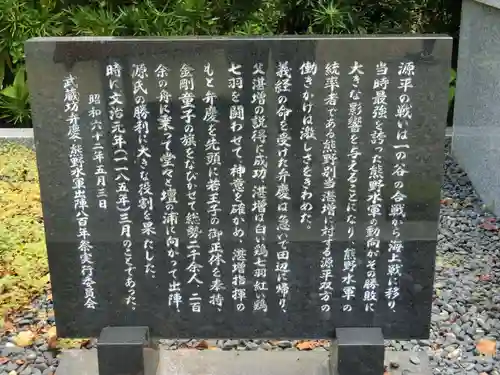 源平の戦いは一の谷の合戦から海上戦に移り、
当時最強を誇った熊野水軍の動向がその勝敗に
大きな影響を与えることになり、熊野水軍の
統率者である熊野別当湛増に対する源平双方の
働きかけは激しさをきわめた。
義経の命を受けた弁慶は急いで田辺に帰り、
父湛増の説得に成功、湛増は白い鶏七羽紅い鶏
七羽を闘わせて、神意を確かめ、湛増指揮の
もと弁慶を先頭に若王子の御正体を奉持、
金剛童子の旗をなびかせ総勢二千余人、二百
余の舟に乗って堂々と壇の浦に向かって出陣、
源氏の勝利に大きな役割を果たした。
時に文治元年(一一八五年)三月のことであった。
昭和六十二年五月三日
武蔵坊弁慶・熊野水軍出陣八百年祭実行委員会